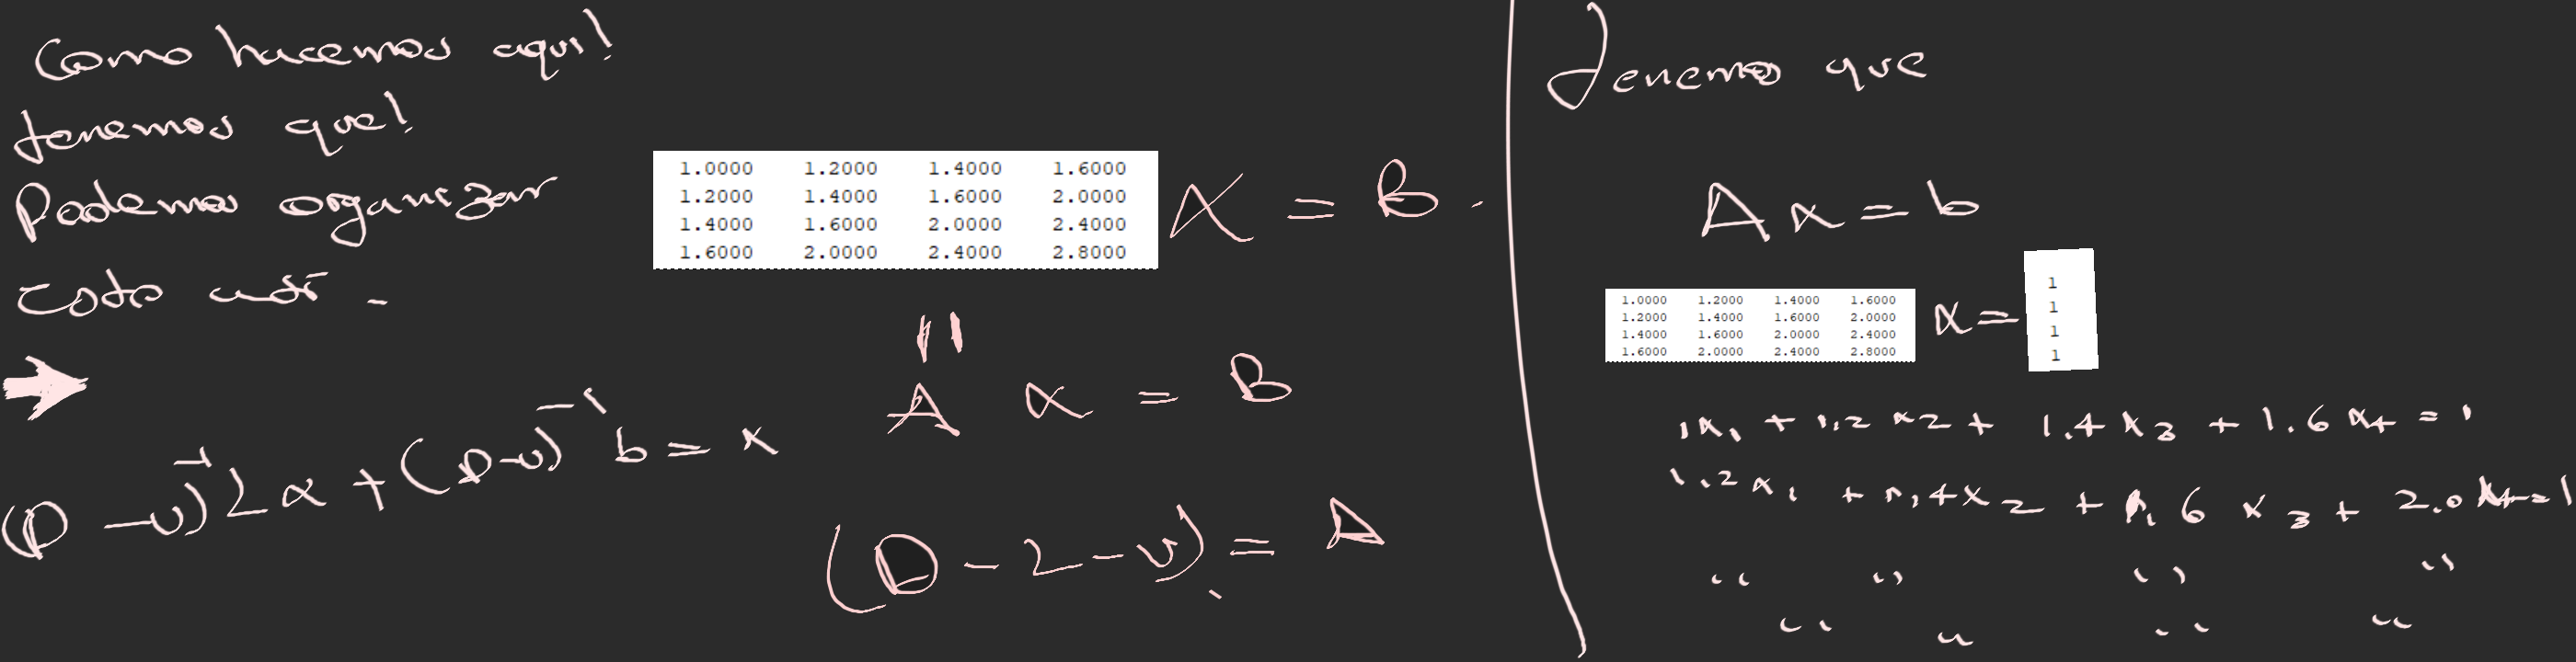 Como hacemos aqui!
tenemos que!
Podemos organizar
esto así -
1.0000 1.2000 1.4000 1.6000
1.2000 1.4000 1.6000 2.0000
1.4000 1.6000 2.0000 2.4000
1.6000 2.0000 2.4000 2.8000
X = B.
"
A x = B
(D-U)⁻¹Lx + (D-U)⁻¹b = x
(D-L-U) = A
Tenemos que
Ax = b
1.0000 1.2000 1.4000 1.6000
1.2000 1.4000 1.6000 2.0000
1.4000 1.6000 2.0000 2.4000
1.6000 2.0000 2.4000 2.8000
x =
1
1
1
1
1x₁ + 1.2x2 + 1.4x3 + 1.6x4 = 1
1.2x₁ + 1.4x2 + 1.6x3 + 2.0x4=1
" " " "
" " " "